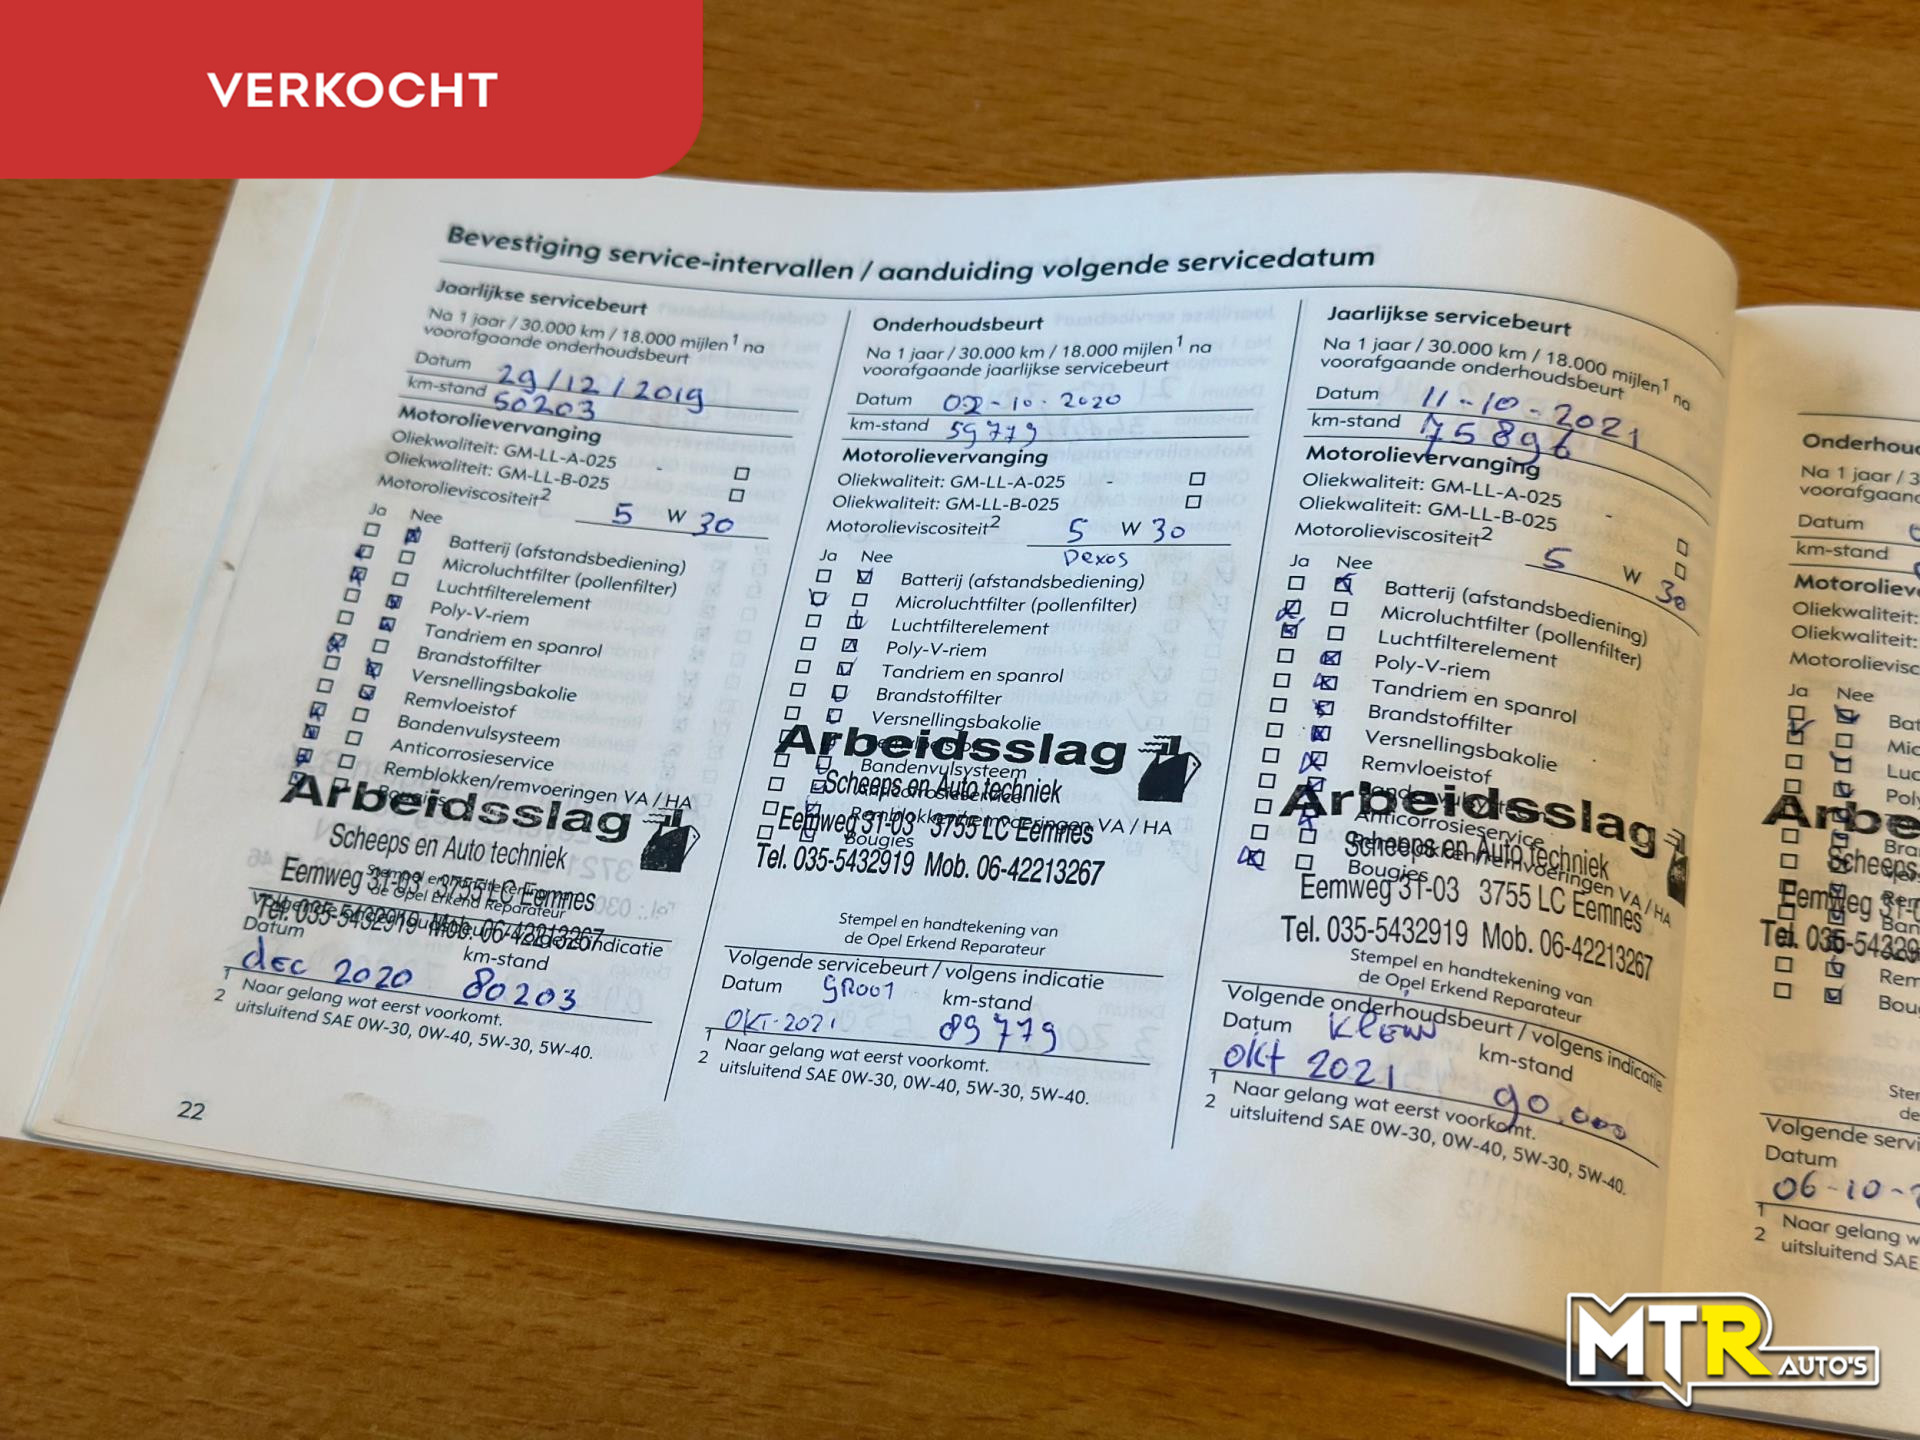 VERKOCHT
Bevestiging service-intervallen / aanduiding volgende servicedatum
Jaarlijkse servicebeurt
Na 1 jaar / 30.000 km / 18.000 mijlen1 na
voorafgaande onderhoudsbeurt
Datum 29/12/2019
km-stand 50203
Motorolievervanging
Oliekwaliteit: GM-LL-A-025 -
Oliekwaliteit: GM-LL-B-025
Motorolieviscositeit2 5 W 30
Ja Nee
Batterij (afstandsbediening)
Microluchtfilter (pollenfilter)
Luchtfilterelement
Poly-V-riem
Tandriem en spanrol
Brandstoffilter
Versnellingsbakolie
Remvloeistof
Bandenvulsysteem
Anticorrosieservice
Remblokken/remvoeringen VA / HA
Bougies
Arbeidsslag
Scheeps en Auto techniek
Eemweg 31-03 3755 LC Eemnes
Tel. 035-5432919 Mob. 06-42213267
Stempel en handtekening van
de Opel Erkend Reparateur
Datum
km-stand
dec 2020 80203
1 Naar gelang wat eerst voorkomt.
2 uitsluitend SAE 0W-30, 0W-40, 5W-30, 5W-40.
22
Onderhoudsbeurt
Na 1 jaar / 30.000 km / 18.000 mijlen1 na
voorafgaande jaarlijkse servicebeurt
Datum 02-10-2020
km-stand 59779
Motorolievervanging
Oliekwaliteit: GM-LL-A-025 -
Oliekwaliteit: GM-LL-B-025
Motorolieviscositeit2 5 W 30
Dexos
Ja Nee
Batterij (afstandsbediening)
Microluchtfilter (pollenfilter)
Luchtfilterelement
Poly-V-riem
Tandriem en spanrol
Brandstoffilter
Versnellingsbakolie
Remvloeistof
Bandenvulsysteem
Anticorrosieservice
Remblokken/remvoeringen VA / HA
Bougies
Arbeidsslag
Scheeps en Auto techniek
Eemweg 31-03 3755 LC Eemnes
Tel. 035-5432919 Mob. 06-42213267
Stempel en handtekening van
de Opel Erkend Reparateur
Volgende servicebeurt / volgens indicatie
Datum km-stand
OKT-2021 89779
1 Naar gelang wat eerst voorkomt.
2 uitsluitend SAE 0W-30, 0W-40, 5W-30, 5W-40.
Jaarlijkse servicebeurt
Na 1 jaar / 30.000 km / 18.000 mijlen1 na
voorafgaande onderhoudsbeurt
Datum 11-10-2021
km-stand 75896
Motorolievervanging
Oliekwaliteit: GM-LL-A-025
Oliekwaliteit: GM-LL-B-025 -
Motorolieviscositeit2 5 W 30
Ja Nee
Batterij (afstandsbediening)
Microluchtfilter (pollenfilter)
Luchtfilterelement
Poly-V-riem
Tandriem en spanrol
Brandstoffilter
Versnellingsbakolie
Remvloeistof
Bandenvulsysteem
Anticorrosieservice
Remblokken/remvoeringen VA / HA
Bougies
Arbeidsslag
Scheeps en Auto techniek
Eemweg 31-03 3755 LC Eemnes
Tel. 035-5432919 Mob. 06-42213267
Stempel en handtekening van
de Opel Erkend Reparateur
Volgende onderhoudsbeurt / volgens indicatie
Datum Klein km-stand
okt 2021 90.000
1 Naar gelang wat eerst voorkomt.
2 uitsluitend SAE 0W-30, 0W-40, 5W-30, 5W-40.
Datum
km-stand
Oliekwaliteit:
Oliekwaliteit:
Ja Nee
Scheeps
Eemweg 31-0
Datum
06-10-
1 Naar gelang
2 uitsluitend SAE
MTR AUTO'S